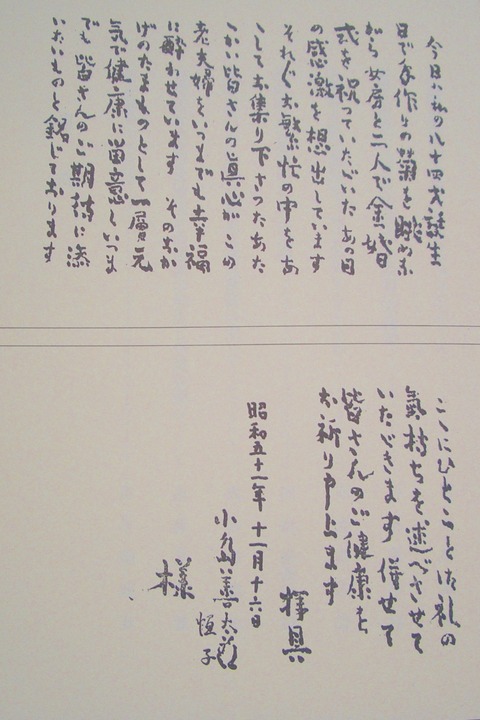 今日は私の八十四才誕生
日で手作りの菊を眺めな
がら女房と二人で金婚
式を祝っていただいたあの日
の感激を想出しています
それぞれお繁忙の中をあ
こしてお集り下さったあた
ゝかい皆さんの真心がこの
老夫婦をいつまでも幸福
に酔かせています そのおか
げのたまものとして一層元
気で健康に留意しいつま
でも皆さんのご期待に添
いたいものと銘じております
ここにひとことお礼の
気持ちを述べさせて
いただきます 併せて
皆さんのご健康を
お祈り申上ます
拝具
昭和五十一年十一月十六日
小島善太郎
恒子
様